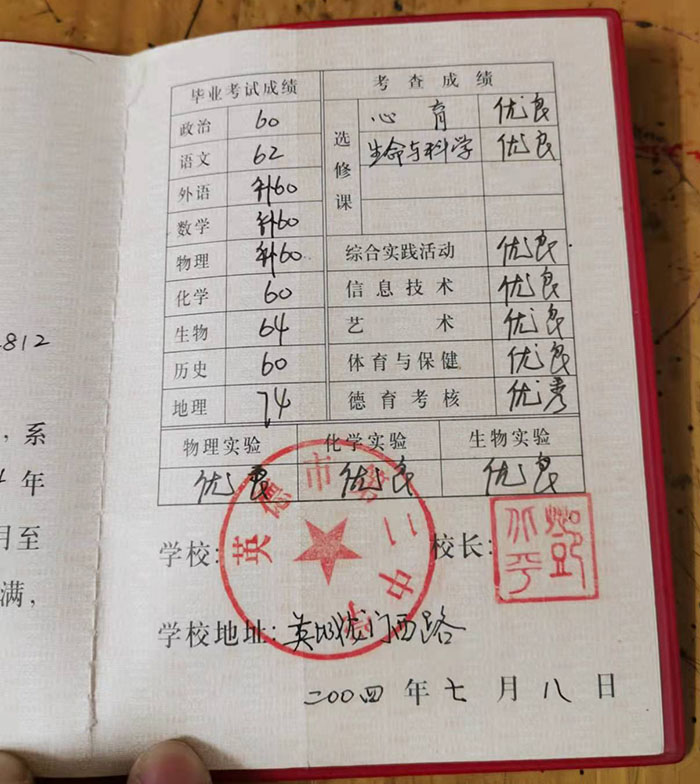 毕业考试成绩 考查成绩
政治 60 选修课 心育 优良
语文 62 生命与科学 优良
外语 补60
数学 补60
物理 补60 综合实践活动 优良
化学 60 信息技术 优良
生物 64 艺术 优良
历史 60 体育与保健 优良
地理 74 德育考核 优秀
物理实验 化学实验 生物实验
优良 优良 优良
812
,系
年
月至
满,
学校: 英德市第二中学 校长:
学校地址: 英 西路
二00四年七月八日